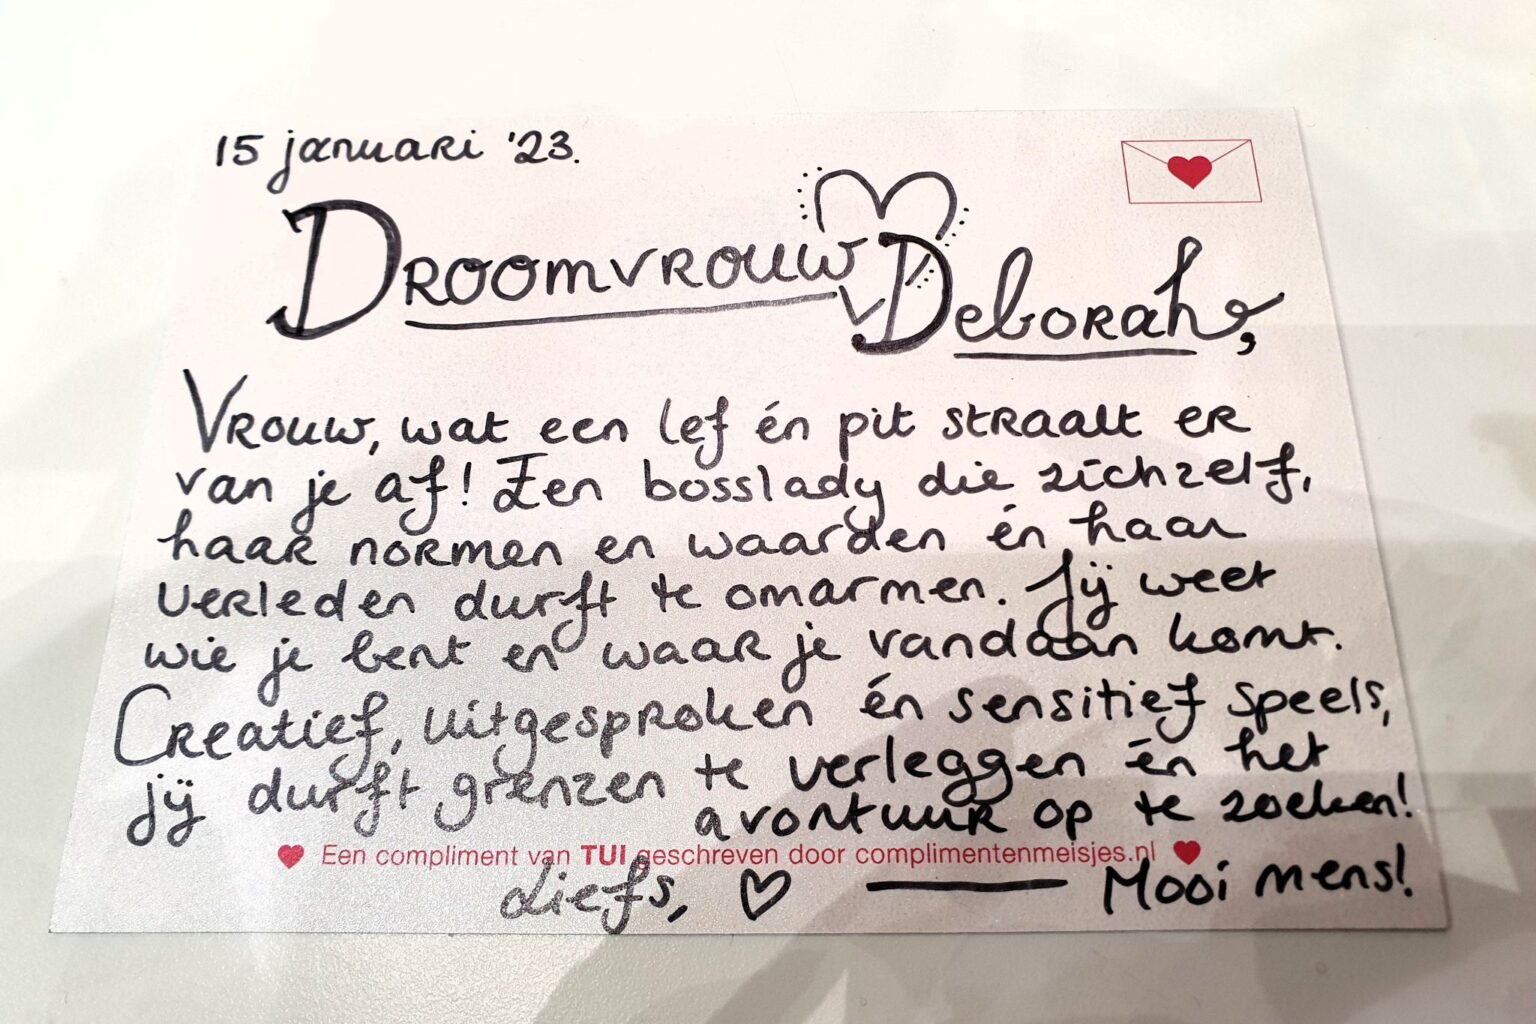 15 januari '23.
Droomvrouw Deborah,
Vrouw, wat een lef én pit straalt er
van je af! Een bosslady die zichzelf,
haar normen en waarden én haar
verleden durft te omarmen. Jij weet
wie je bent en waar je vandaan komt.
Creatief, uitgesproken én sensitief speels,
jij durft grenzen te verleggen én het
avontuur op te zoeken!
Een compliment van TUI geschreven door complimentenmeisjes.nl
Liefs, ♡ — Mooi mens!